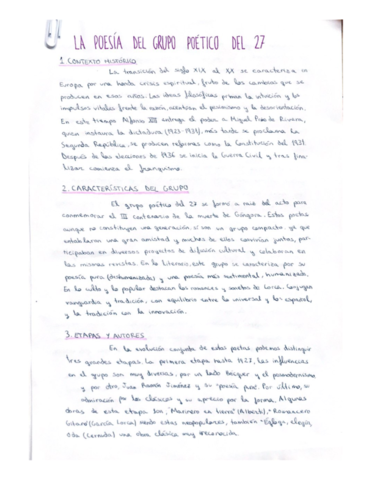 LA POESÍA DEL GRUPO POÉTICO DEL 27
1. CONTEXTO HISTÓRICO
La transición del siglo XIX al XX se caracteriza en
Europa por una honda crisis espiritual, fruto de los cambios que se
producen en esos años. Las ideas filosóficas priman la intuición y los
impulsos vitales frente la razón, acentúan el pesimismo y la desorientación.
En este tiempo Alfonso XIII entrega el poder a Miguel Primo de Rivera,
quien instaura la dictadura (1923-1931), más tarde se proclama la
Segunda República, se producen reformas como la Constitución del 1931.
Después de las elecciones de 1936 se inicia la Guerra Civil y tras
comienza el franquismo.
2. CARACTERÍSTICAS DEL GRUPO
El grupo poético del 27 se formó a raíz del acto para
conmemorar el III centenario de la muerte de Góngora. Estos poetas
aunque no constituyen una generación, sí son un grupo compacto ya que
establecieron una gran amistad y muchos de ellos convivían juntos, par-
ticipaban en diversos proyectos de difusión cultural y colaboraron en
las mismas revistas. En lo literario, este grupo se caracteriza por su
poesía pura (deshumanizada) y una poesía más sentimental, humanizada.
En lo culto y lo popular destacan los romances y sonetos de Lorca. Conjugan
vanguardia y tradición, con equilibrio entre lo universal y lo español,
y la tradición con la innovación.
3. ETAPAS Y AUTORES
En la evolución conjunta de estos poetas podemos distinguir
tres grandes etapas. La primera etapa hasta 1927, las influencias
en el grupo son muy diversas, por un lado Bécquer y el posmodernismo
y por otro, Juan Ramón Jiménez y su "poesía pura". Por último, su
admiración por los clásicos y su aprecio por la forma. Algunas
obras de esta etapa son, "Marinero en tierra" (Alberti), "Romancero
Gitano" (García Lorca) siendo estas neopopulares, también "Égloga, elegía,
Oda" (Cernuda) una obra clásica muy